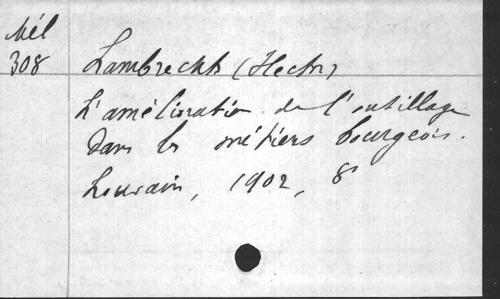 Mél
308
Lambrechts (Hector)
L'amélioration de l'outillage
dans les métiers bourgeois.
Louvain, 1902, 8°